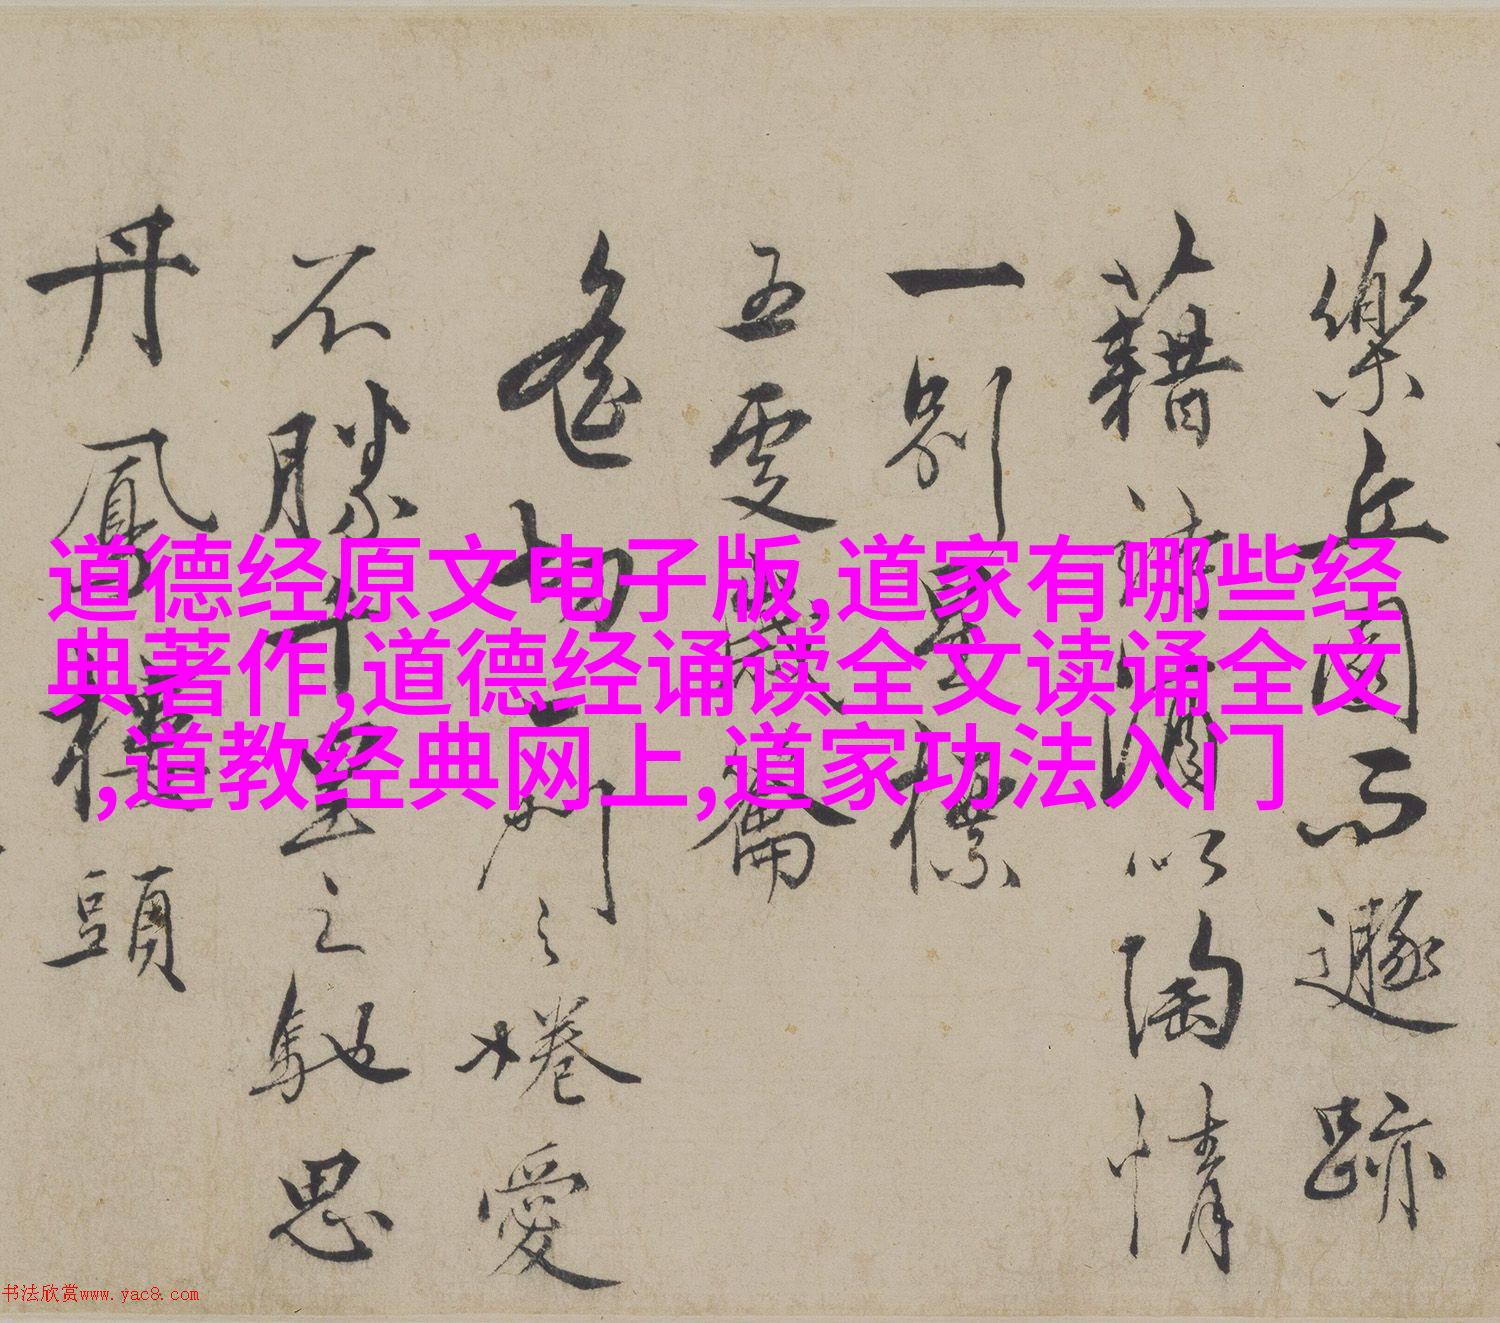 樂丘園而遯跡
藉詩酒以陶情
一别
五歲籥
切之惓愛
不勝之馳思
丹鳳樓頭
道德经原文电子版,道家有哪些经
典著作,道德经诵读全文读诵全文
,道教经典网上,道家功法入门
书法欣赏www.yac8.com